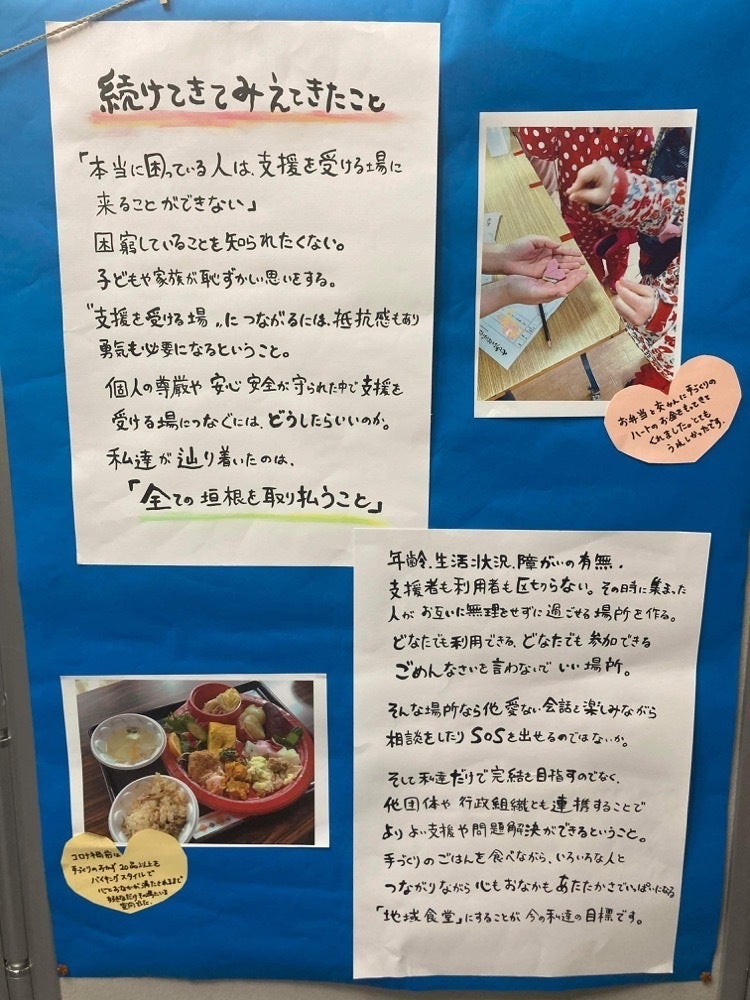 続けてきてみえてきたこと
「本当に困っている人は、支援を受ける場に
来ることができない」
困窮していることを知られたくない。
子どもや家族が恥ずかしい思いをする。
“支援を受ける場„につながるには、抵抗感もあり
勇気も必要になるということ。
個人の尊厳や安心安全が守られた中で支援を
受ける場につなぐには、どうしたらいいのか。
私達が辿り着いたのは、
「全ての垣根を取り払うこと」
お弁当と交かんに手づくりの
ハートのお金をもってきて
くれました。とても
うれしかったです。
年齢、生活状況、障がいの有無、
支援者も利用者も区切らない。その時に集まった
人がお互いに無理をせずに過ごせる場所を作る。
どなたでも利用できる、どなたでも参加できる
ごめんなさいを言わないで いい場所。
そんな場所なら他愛ない会話を楽しみながら
相談をしたりSOSを出せるのではないか。
そして私達だけで完結を目指すのでなく、
他団体や行政組織とも連携することで
よりよい支援や問題解決ができるということ。
手づくりのごはんを食べながら、いろいろな人と
つながりながら心もおなかもあたたかさでいっぱいになる
「地域食堂」にすることが今の私達の目標です。
コロナ禍前は
手づくりのおかず20品以上を
バイキングスタイルで
心とおなかが満たされるまで